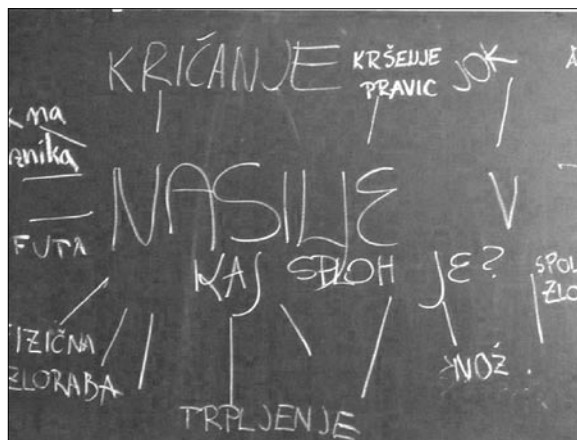 KRIČANJE
KRŠENJE
PRAVIC
JOK
na
NASILJE V
FUTA
KAJ SPLOH JE?
SPOL
ZLO
FIZIČNA
ZLORABA
NOŽ
TRPLJENJE